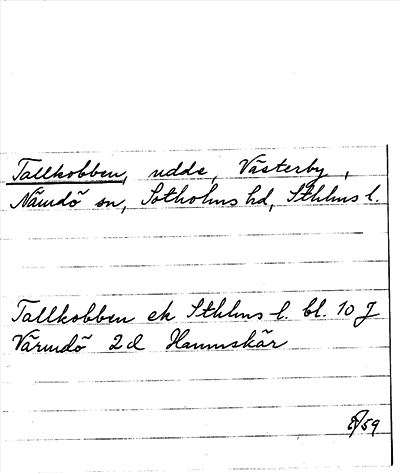 Tallkobben, udde, Västerby,
Nämdö sn, Sotholms hd, Sthlms l.
Tallkobben ek Sthlms l. bl. 10 J
Värmdö 2d Hamnskär
59